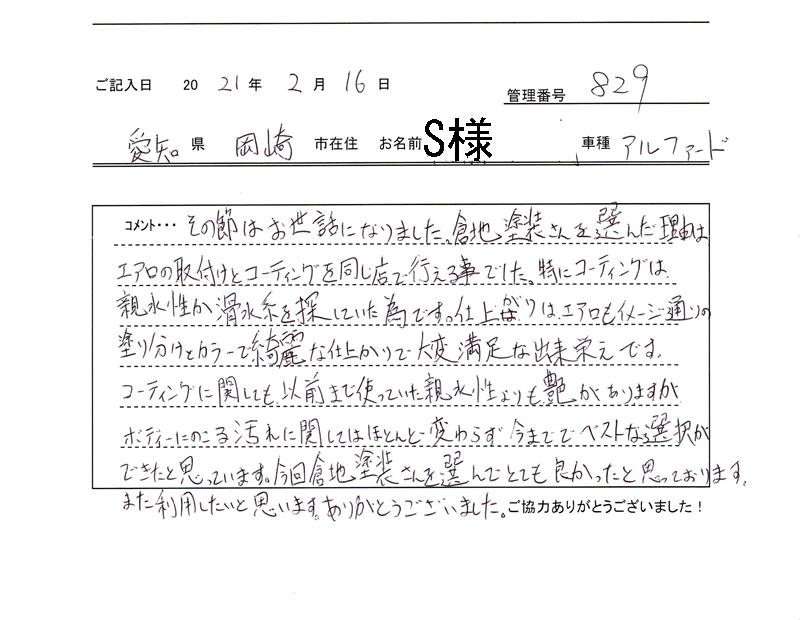 ご記入日 2021年2月16日
管理番号 829
愛知県 岡崎市在住 お名前 S様 車種 アルファード
コメント・・・その節はお世話になりました。倉地塗装さんを選んだ理由は
エアロの取付けとコーティングを同じ店で行える事でした。特にコーティングは
親水性か滑水系を探していた為です。仕上がりは、エアロもイメージ通りの
塗り分けとカラーで綺麗な仕上がりで大変満足な出来栄えです。
コーティングに関しても以前まで使っていた親水性よりも艶がありますが
ボディーにのこる汚れに関してはほとんど変わらず今まででベストな選択が
できたと思っています。今回倉地塗装さんを選んでとても良かったと思っております。
また利用したいと思います。ありがとうございました。ご協力ありがとうございました!